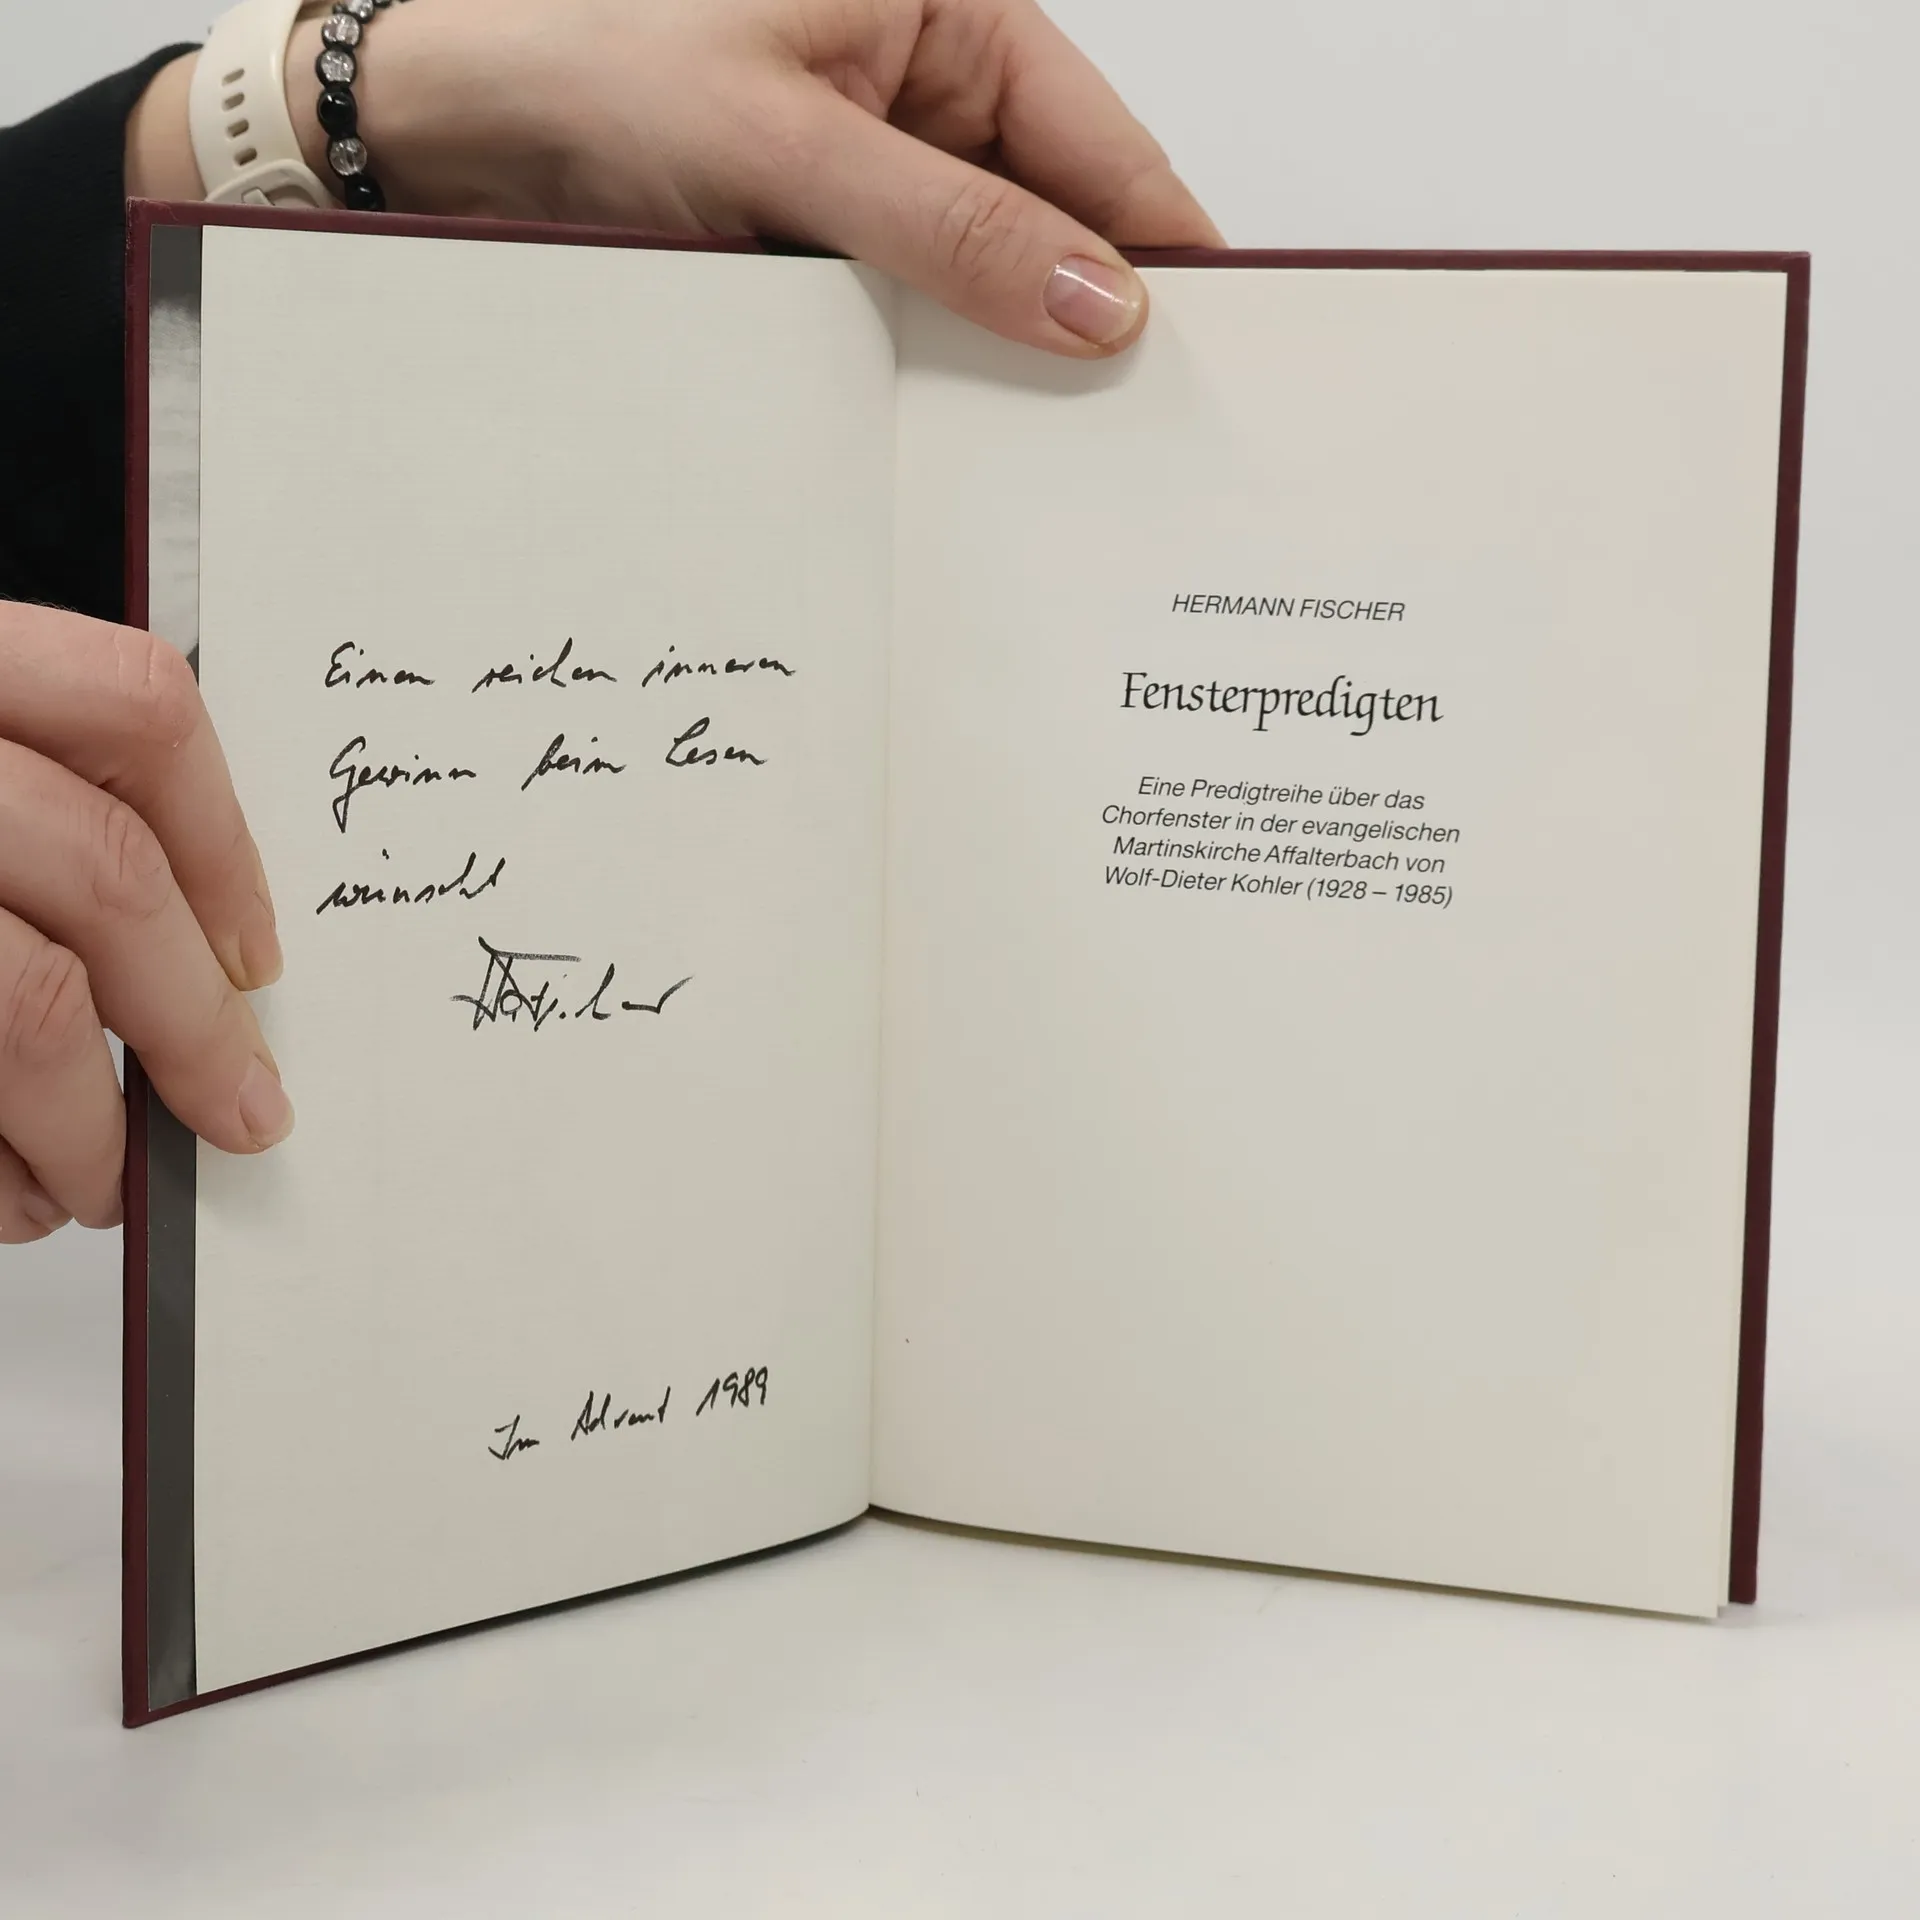 Einen reichen inneren
Gewinn beim Lesen
wünscht
Im Advent 1989
HERMANN FISCHER
Fensterpredigten
Eine Predigtreihe über das
Chorfenster in der evangelischen
Martinskirche Affalterbach von
Wolf-Dieter Kohler (1928 – 1985)